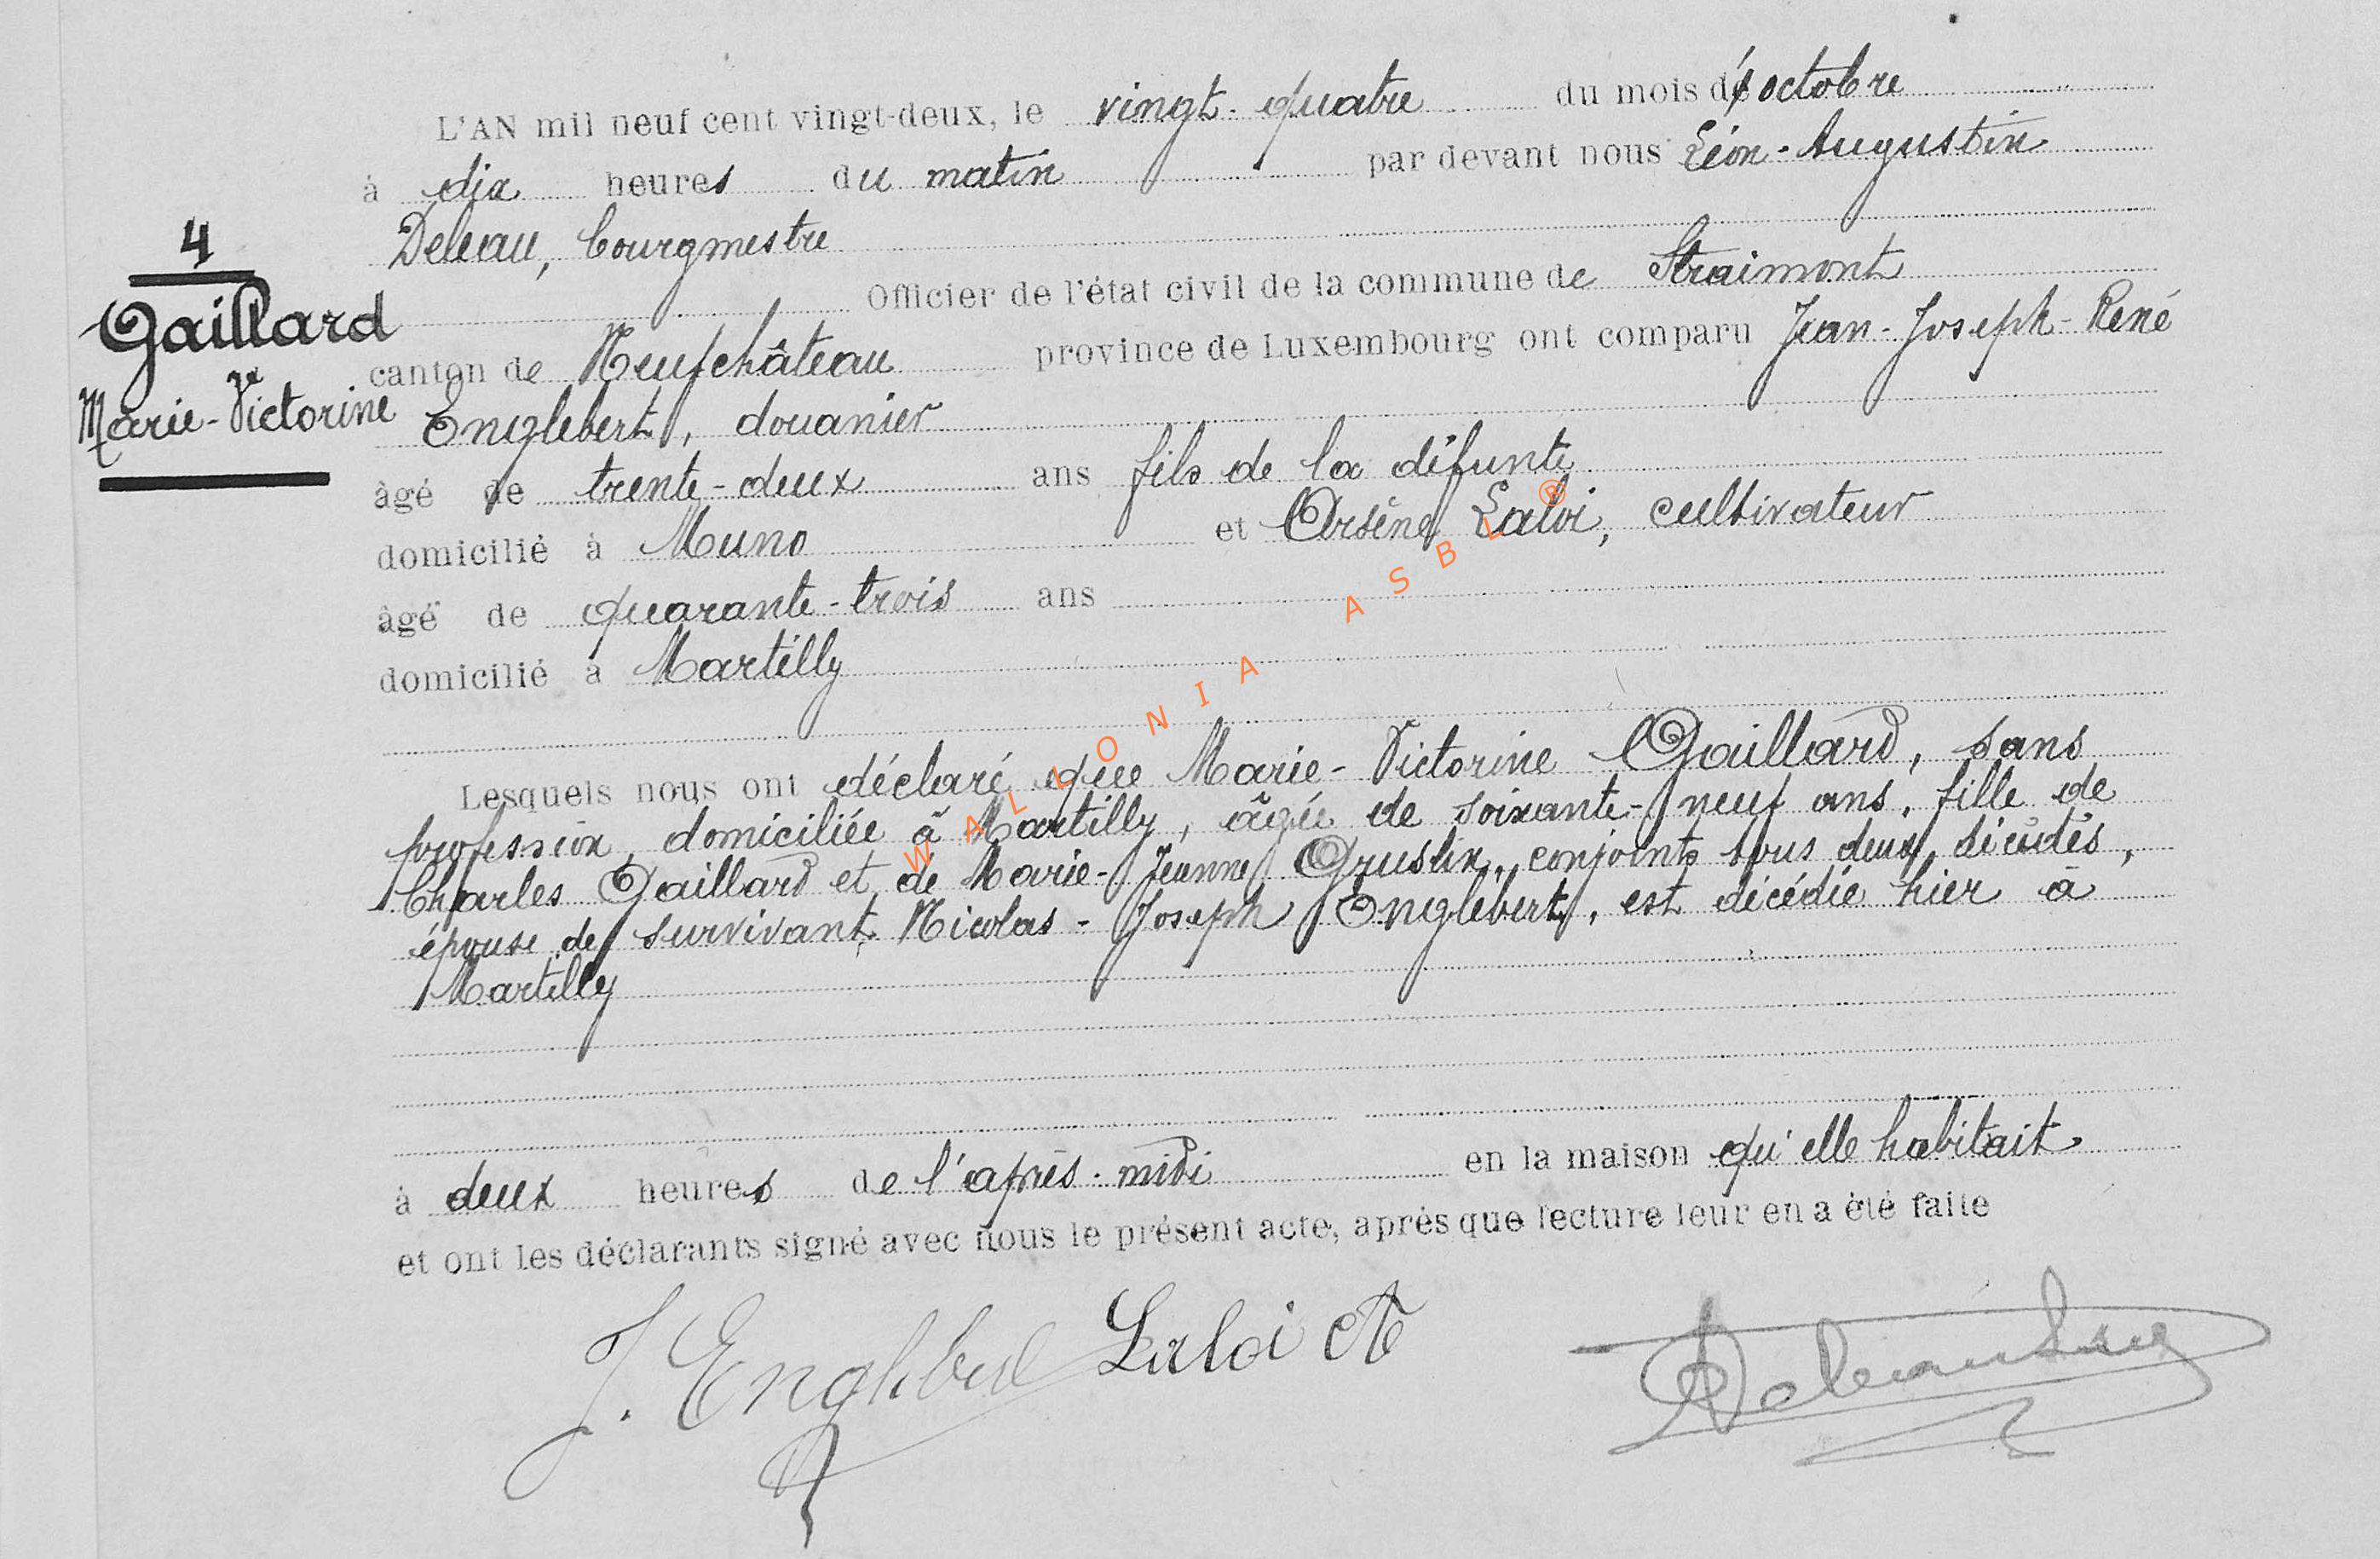 L'AN mil neuf cent vingt-deux, le vingt-quatre du mois d'octobre
à dix heures du matin par devant nous Léon-Augustin
Deleau, bourgmestre
Officier de l'état civil de la commune de Straimont
4
Gaillard
Marie-Victorine
canton de Neufchâteau province de Luxembourg ont comparu Jean-Joseph-René
Englebert, douanier
âgé de trente-deux ans fils de la défunte
domicilié à Muno et Arsène Laloi, cultivateur
âgé de quarante-trois ans
domicilié à Martilly
Lesquels nous ont déclaré que Marie-Victorine Gaillard, sans
profession, domiciliée à Martilly, âgée de soixante-neuf ans, fille de
Charles Gaillard et de Marie-Jeanne Gruslin, conjoints tous deux décédés,
épouse de survivant Nicolas-Joseph Englebert, est décédée hier à
Martilly
à deux heures de l'après-midi en la maison qu'elle habitait
et ont les déclarants signé avec nous le présent acte, après que lecture leur en a été faite
J. Englebert Laloi A
WALLONIA ASBL ®